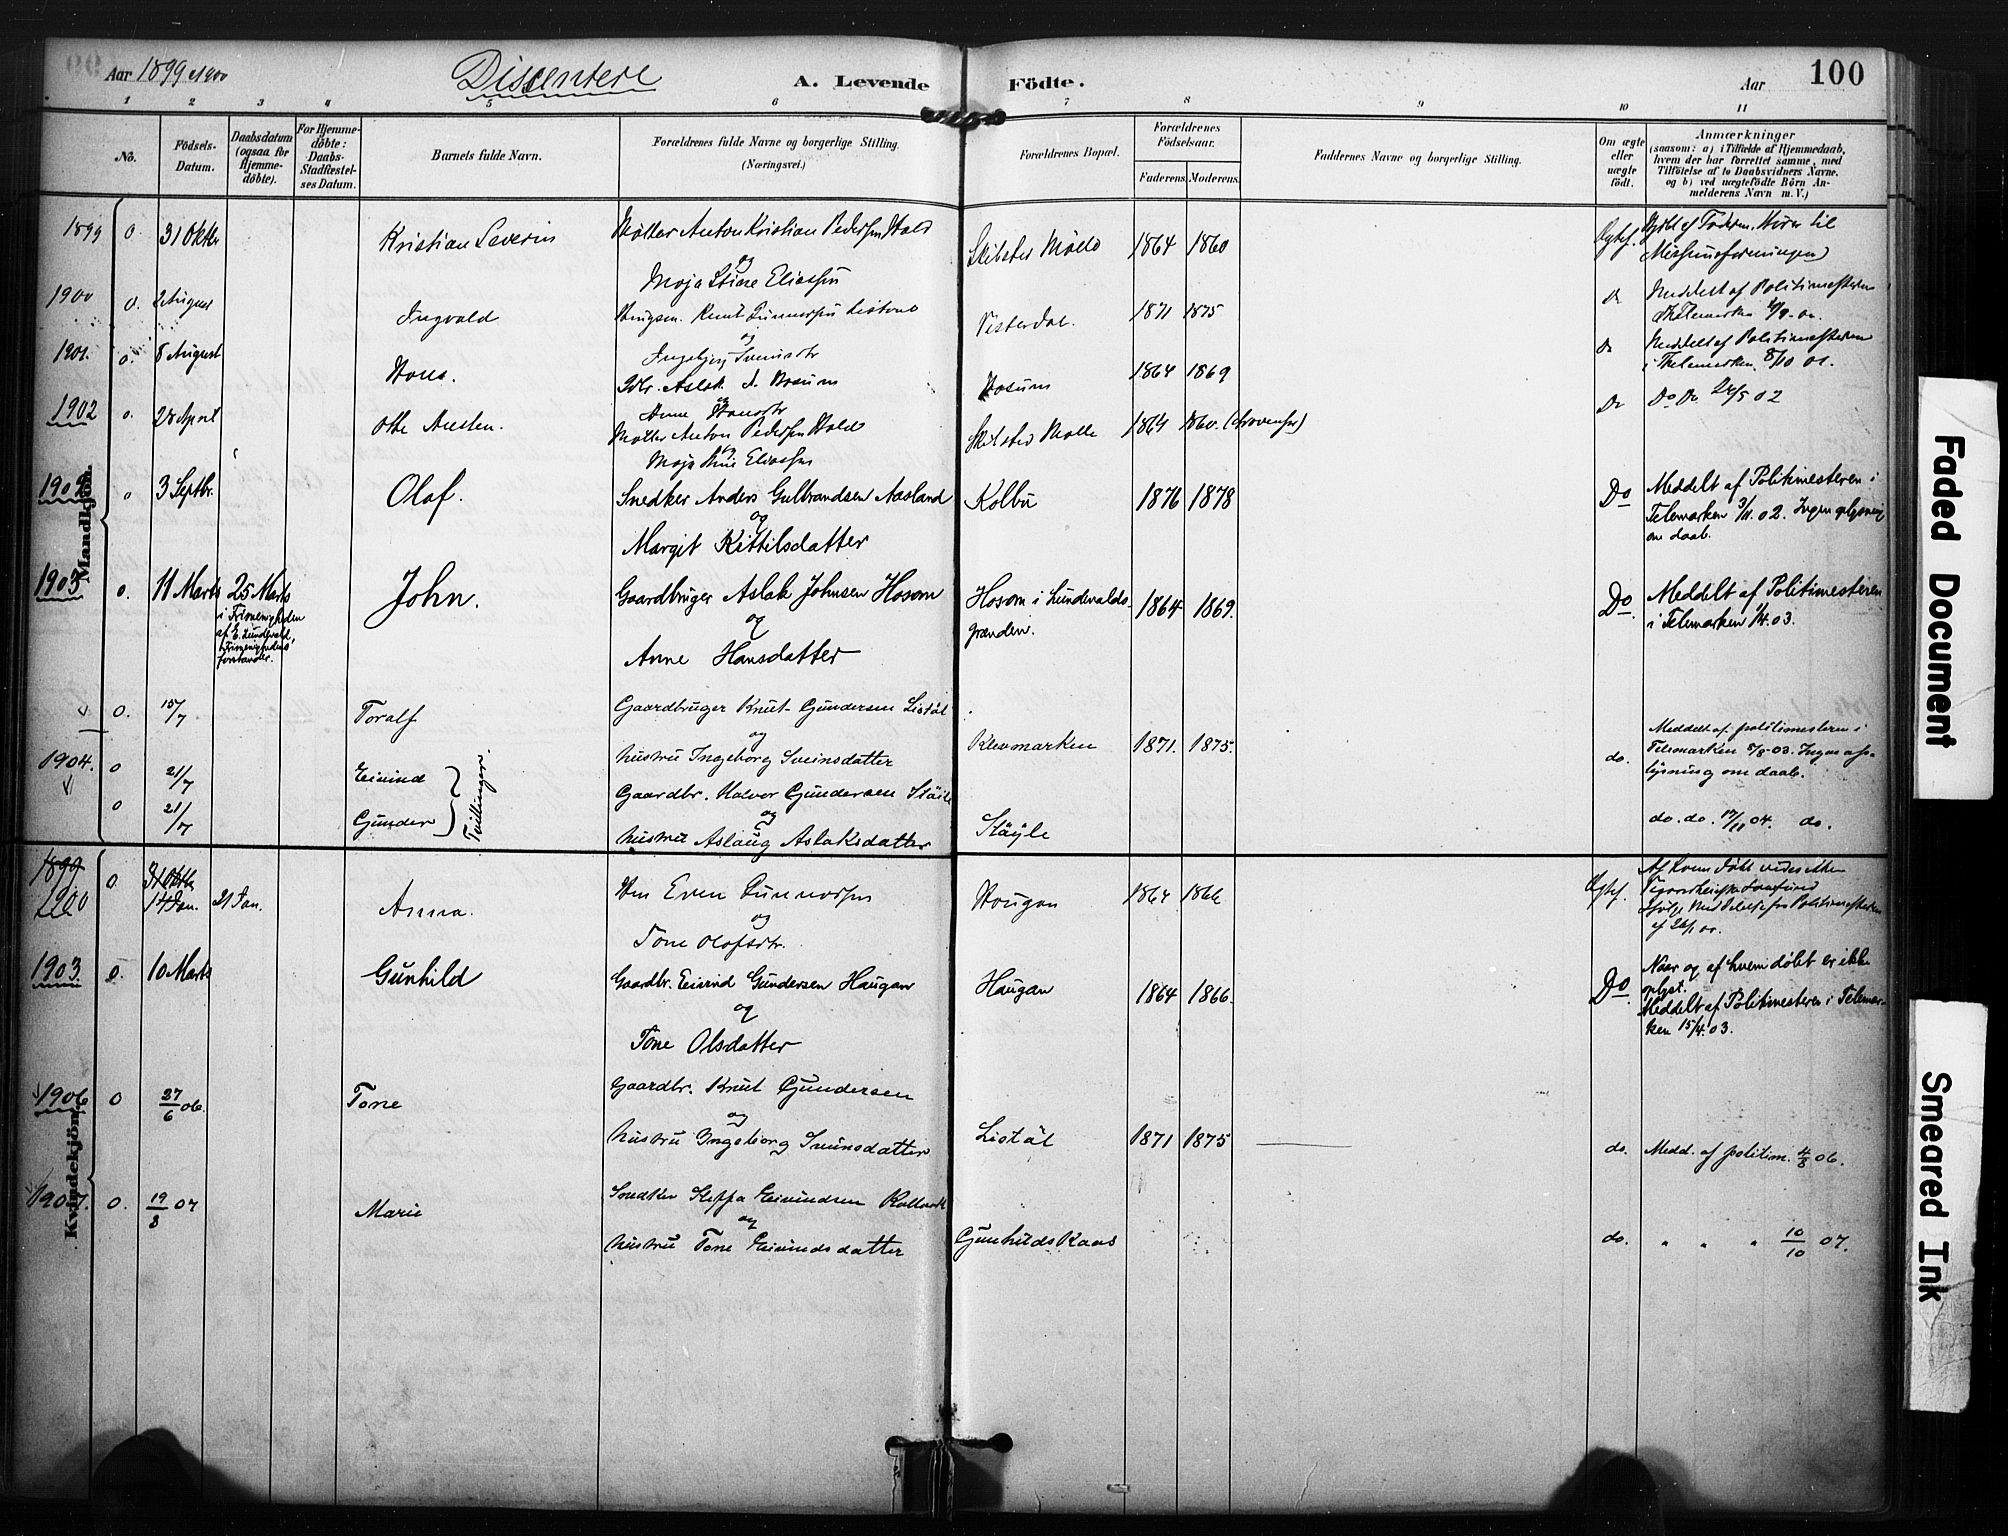 Aar 1899 & 1900
Dissentere
A. Levende Födte.
Aar
100
1 2 3 4 5 6 7 8 9 10 11
No.
Födsels-
Datum.
Daabsdatum
(ogsaa for
Hjemme-
döbte).
For Hjemme-
döbte:
Daabs-
Stadfæstel-
ses Datum.
Barnets fulde Navn.
Forældrenes fulde Navne og borgerlige Stilling.
(Næringsvei.)
Forældrenes Bopæl.
Forældrenes
Födselsaar.
Faderens. Moderens.
Faddernes Navne og borgerlige Stilling.
Om ægte
eller
uægte
födt.
Anmærkninger
(saasom: a) i Tilfælde af Hjemmedaab,
hvem der har forrettet samme, med
Tilföielse af to Daabsvidners Navne.
og b) ved uægtefödte Börn An-
melderens Navn m. V.)
Mandkjön.
1899 0 31 Oktbr Kristian Severin Møller Anton Kristian Pedersen Hold
og
Maja Stine Eliassen
Skilsted Mølle 1864 1860 Faderen til
Missionsforeningen
1900 0. 2 August Ingvald Knut Gunnarsen Listøl
og
Ingebjørg Sveinsdtr
Vesterdal. 1871 1875 Do Meddelt af Politimesteren
i Telemarken
1901. 0. 8 August Hans. Aslak A. Hosum
og
Anne Hansdtr
Hosum 1864 1869 Do Meddelt af Politimesteren
i Thelemarken 8/10 01.
1902 0. 28 April Otto Austen. Møller Anton Pedersen Hold
og
Maja Stine Eliassen
Skilsted Mølle 1864 1860. Do Do Do 24/5 02
1902 0 3 Septbr. Olaf. Snedker Anders Gulbrandsen Aasland
og
Margit Kittilsdatter
Kolbu 1876 1878 Do Meddelt af Politimesteren i
Telemarken 3/11. 02. Ingen oplysning
om daab.
1903 0. 11 Marts 25 Marts
i Frimenigheden
af E. Lundevald,
Frimenighedens
forstander.
John. Gaardbruger Aslak Johnsen Hosom
og
Anne Hansdatter
Hosom i Lundevalds-
grænden.
1864 1869. Do Meddelt af Politimesteren
i Telemarken 1/4. 03.
0. 15/7 Toralf Gaardbruger Knut Gundersen Listøl
og
hustru Ingeborg Sveinsdatter
Klevmarken 1871. 1875. do. Meddelt af politimesteren i
Telemarken 8/8 03. Ingen op-
lysning om daab.
1904. 0 21/7 Eivind
0 21/7 Gunder
Tvillinger
Gaardbr. Halvor Gundersen Støile
og
hustru Aslaug Aslaksdatter
Støyle do. do. 17/11 04. do.
Kvindekjön.
1899
1900 0. 31 Oktbr
14 Jan. 21 Jan. Anna. Even Gunnarsen
og
Tone Olafsdtr.
Hougan 1864 1866 Af hvem døbt vides ikke
Meddelelse fra Politimesteren
af 26/1 00.
1903 0. 10 Marts Gunhild Gaardbr. Eivind Gundersen Haugan
og
Tone Olsdatter
Haugan 1864 1866. Do Naar og af hvem døbt er ikke
oplyst.
Meddelt af Politimesteren i Telemar-
ken 15/4. 03.
1906 0 27/6 06. Tone Gaardbr. Knut Gundersen
og
hustru Ingeborg Sveinsdatter
Listøl 1871 1875 do. Medd. af politim. 4/8 06.
1907. 0. 19/8 07 Marie Snedker Steffa Eivindsen
og
hustru Tone Eivindsdatter
Gunhilds Kaas do. " " " 10/10 07.
Faded Document
Smeared Ink